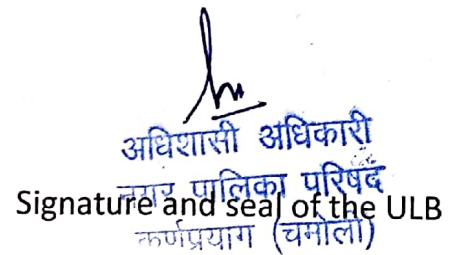 अधिशासी अधिकारी
नगर पालिका परिषद
Signature and seal of the ULB
कर्णप्रयाग (चमोली)